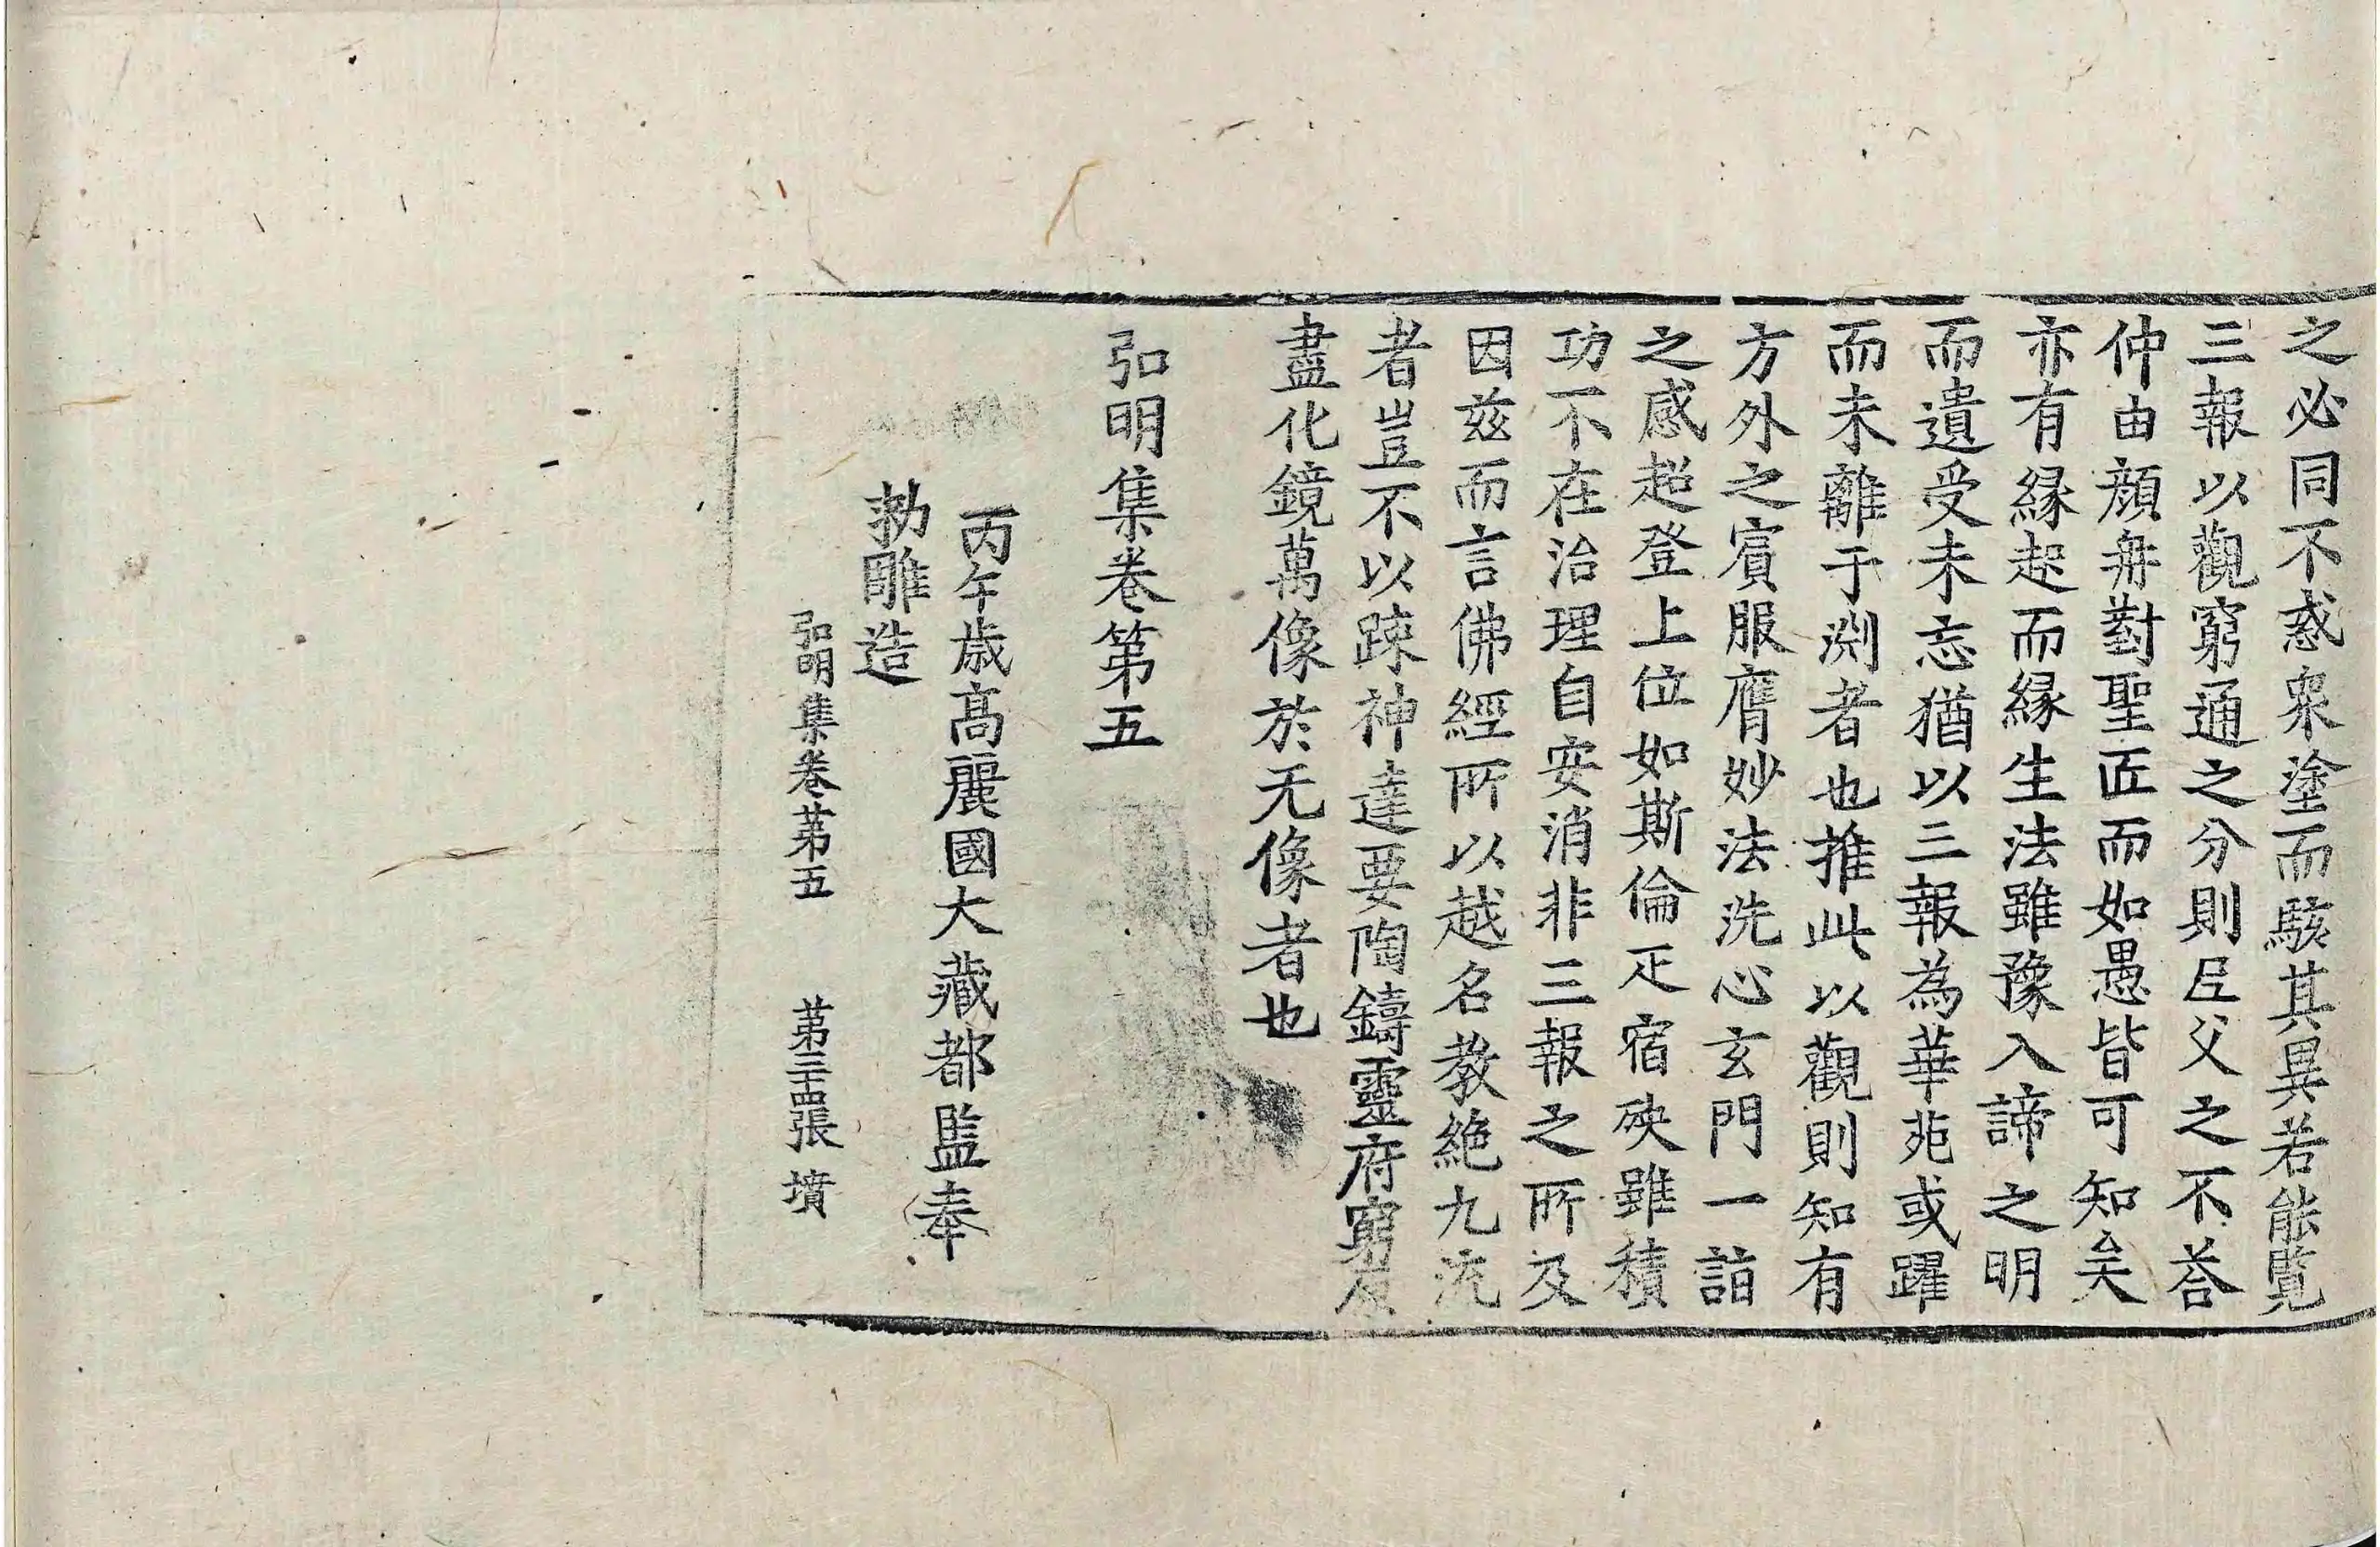 之必同不惑衆塗而駭其異若能覽
三報以觀窮通之分則尼父之不荅
仲由顔冉對聖匠而如愚皆可知矣
亦有縁起而縁生法雖豫入諦之明
而遺受未忘猶以三報為華苑或躍
而未離于渕者也推此以觀則知有
方外之賔服膺妙法洗心玄門一詣
之感超登上位如斯倫疋宿殃雖積
功不在治理自安消非三報之所及
因兹而言佛經所以越名教絶九流
者豈不以踈神達要陶鑄靈府窮原
盡化鏡萬像於无像者也
弘明集卷第五
丙午歳高麗國大藏都監奉
勑雕造
弘明集卷苐五 苐三十四張 墳